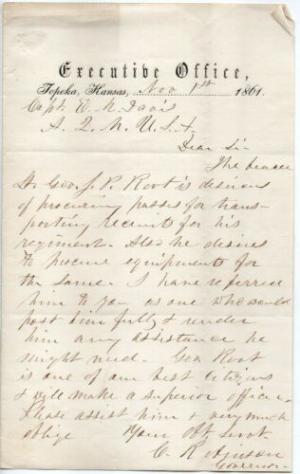 Executive Office,
Topeka, Kansas, Nov 1st 1861.
Capt. E. M. Davis
A. Q. M. U. S. A.
Dear Sir
The bearer
Lt Gov. J. P. Root is desirous
of procuring passes for trans-
porting recruits for his
regiment. Also he desires
to procure equipments for
the same. I have referred
him to you as one who could
post him fully & render
him any assistance he
might need. Gov Root
is one of our best citizens
& will make a superior officer.
Please assist him & very much
oblige Your Obt Servt.
C. Robinson
Governor